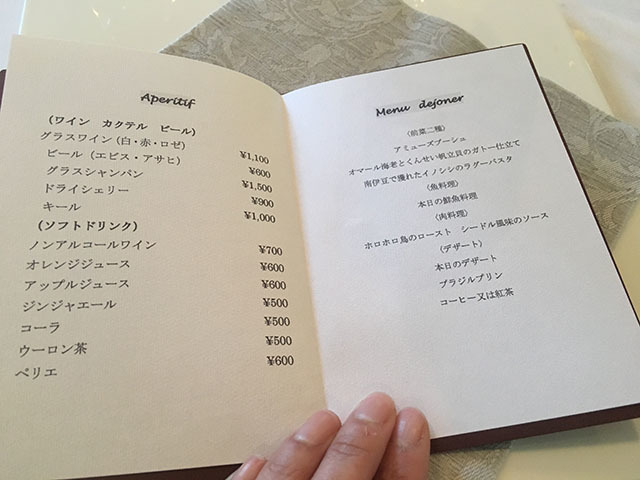 Aperitif
(ワイン カクテル ビール)
グラスワイン(白・赤・ロゼ) ¥1,100
ビール(エビス・アサヒ) ¥600
グラスシャンパン ¥1,500
ドライシェリー ¥900
キール ¥1,000
(ソフトドリンク)
ノンアルコールワイン ¥700
オレンジジュース ¥600
アップルジュース ¥600
ジンジャエール ¥500
コーラ ¥500
ウーロン茶 ¥500
ペリエ ¥600
Menu dejoner
(前菜二種)
アミューズブーシュ
オマール海老とくんせい帆立貝のガトー仕立て
南伊豆で獲れたイノシシのラグーパスタ
(魚料理)
本日の鮮魚料理
(肉料理)
ホロホロ鳥のロースト シードル風味のソース
(デザート)
本日のデザート
ブラジルプリン
コーヒー又は紅茶